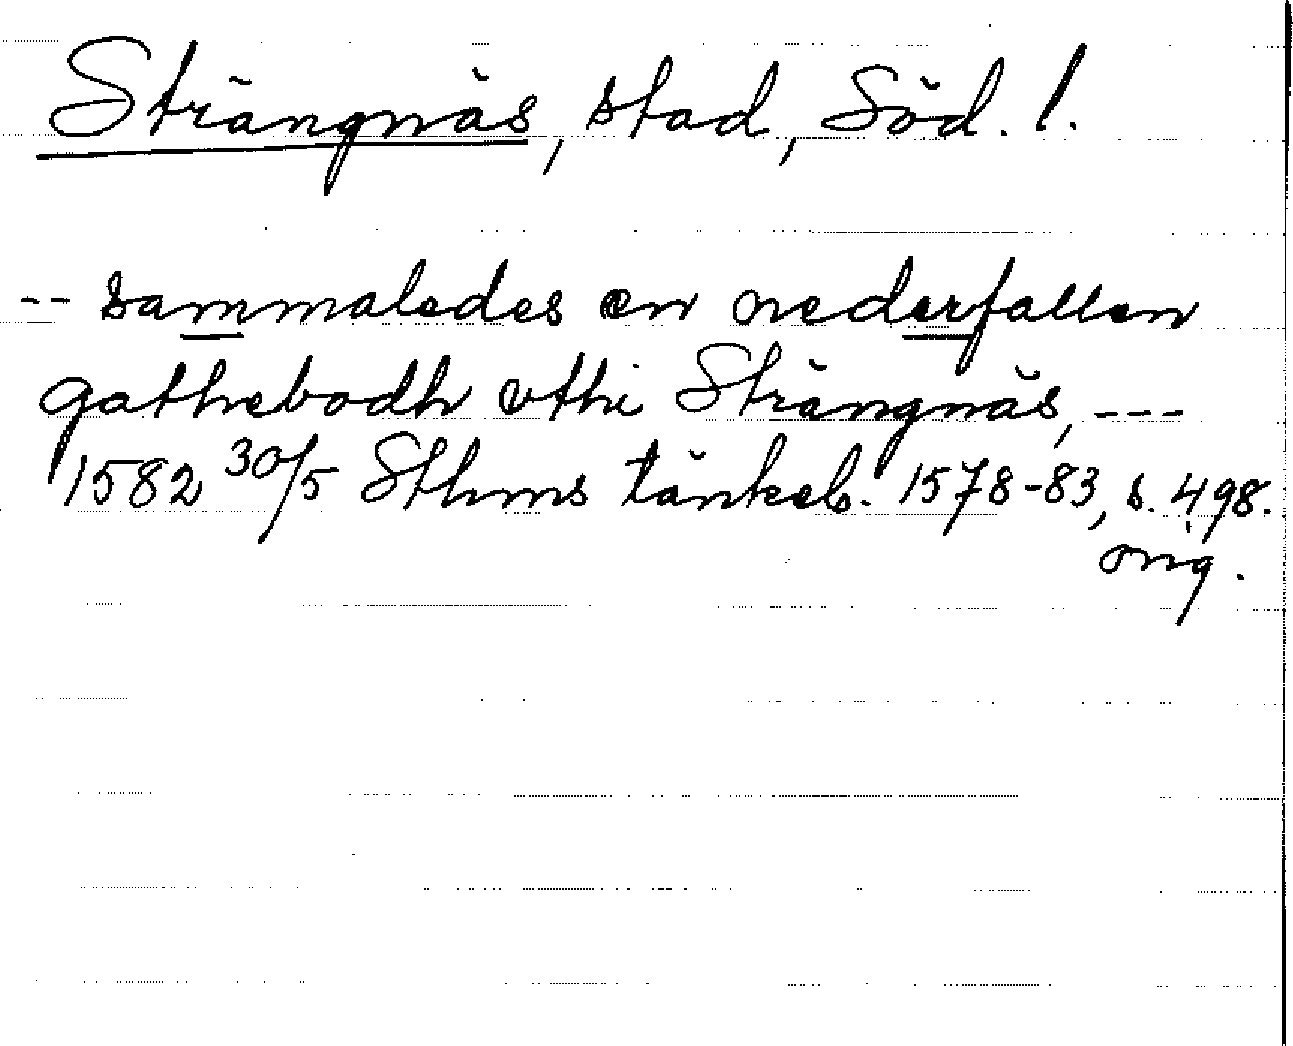 Strängnäs, stad, Söd. l.
-- sammaledes en nederfallen
gathebodh vthi Strängnäs, ---
1582 30/5 Sthms tänkeb. 1578-83, s. 498.
orig.